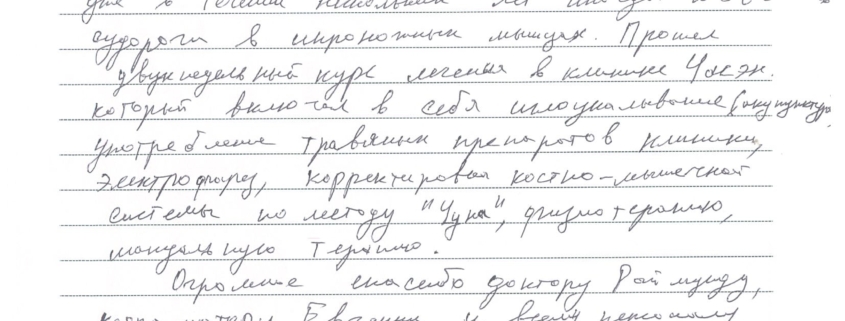 уже в течении нескольких лет
судороги в икроножных мышцах. Прошел
двухнедельный курс лечения в клинике Чаэн.
который включал в себя иглоукалывание (окупунктура
употребление травяных препаратов клиники,
электрофорез, корректировая костно-мышечной
системы по методу "Чуна", физиотерапию,
мануальную терапию.
Огромное спасибо доктору Раймунду,
Евгении и всему персоналу